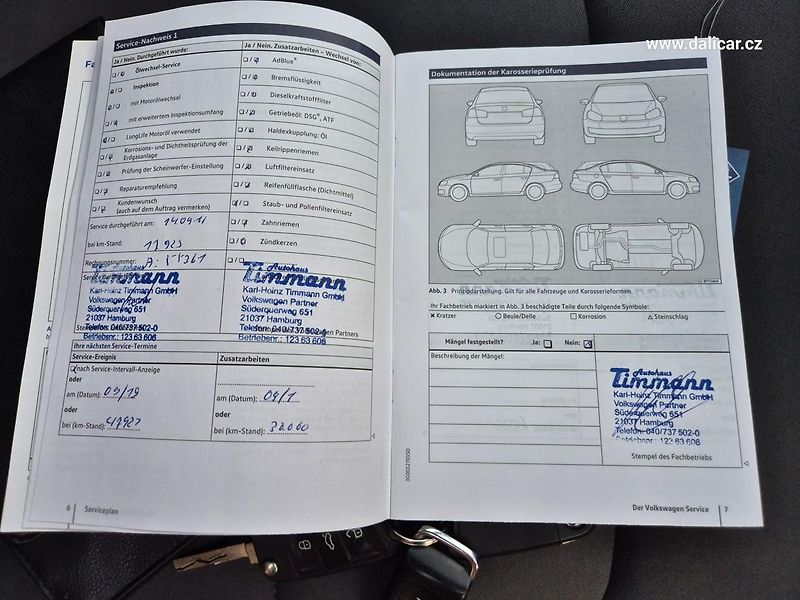 www.dalicar.cz
Fa
Service-Nachweis 1
Ja / Nein. Durchgeführt wurde:
Ölwechsel-Service
Inspektion
mit Motorölwechsel
mit erweitertem Inspektionsumfang
LongLife Motoröl verwendet
Korrosions- und Dichtheitsprüfung der
Erdgasanlage
Prüfung der Scheinwerfer-Einstellung
Reparaturempfehlung
Kundenwunsch
(auch auf dem Auftrag vermerken)
Service durchgeführt am:
bei km-Stand:
Rechnungsnummer:
Autohaus
Timmann
Karl-Heinz Timmann GmbH
Volkswagen Partner
Süderquerweg 651
21037 Hamburg
Telefon: 040/737 502-0
Betriebsnr.: 123 63 606
Ja / Nein. Zusatzarbeiten – Wechsel von:
AdBlue®
Bremsflüssigkeit
Dieselkraftstofffilter
Getriebeöl: DSG®, ATF
Haldexkupplung: Öl
Keilrippenriemen
Luftfiltereinsatz
Reifenfüllflasche (Dichtmittel)
Staub- und Pollenfiltereinsatz
Zahnriemen
Zündkerzen
Autohaus
Timmann
Karl-Heinz Timmann GmbH
Volkswagen Partner
Süderquerweg 651
21037 Hamburg
Telefon: 040/737 502-0
Betriebsnr.: 123 63 606
Ihre nächsten Service-Termine
Service-Ereignis
Zusatzarbeiten
nach Service-Intervall-Anzeige
oder
am (Datum):
am (Datum):
oder
oder
bei (km-Stand):
bei (km-Stand):
6 Serviceplan
Dokumentation der Karosserieprüfung
Abb. 3 Prinzipdarstellung. Gilt für alle Fahrzeuge und Karosserieformen.
Ihr Fachbetrieb markiert in Abb. 3 beschädigte Teile durch folgende Symbole:
Kratzer Beule/Delle Korrosion Steinschlag
Mängel festgestellt? Ja: Nein:
Beschreibung der Mängel:
Autohaus
Timmann
Karl-Heinz Timmann GmbH
Volkswagen Partner
Süderquerweg 651
21037 Hamburg
Telefon: 040/737 502-0
Betriebsnr.: 123 63 606
Stempel des Fachbetriebs
Der Volkswagen Service 7